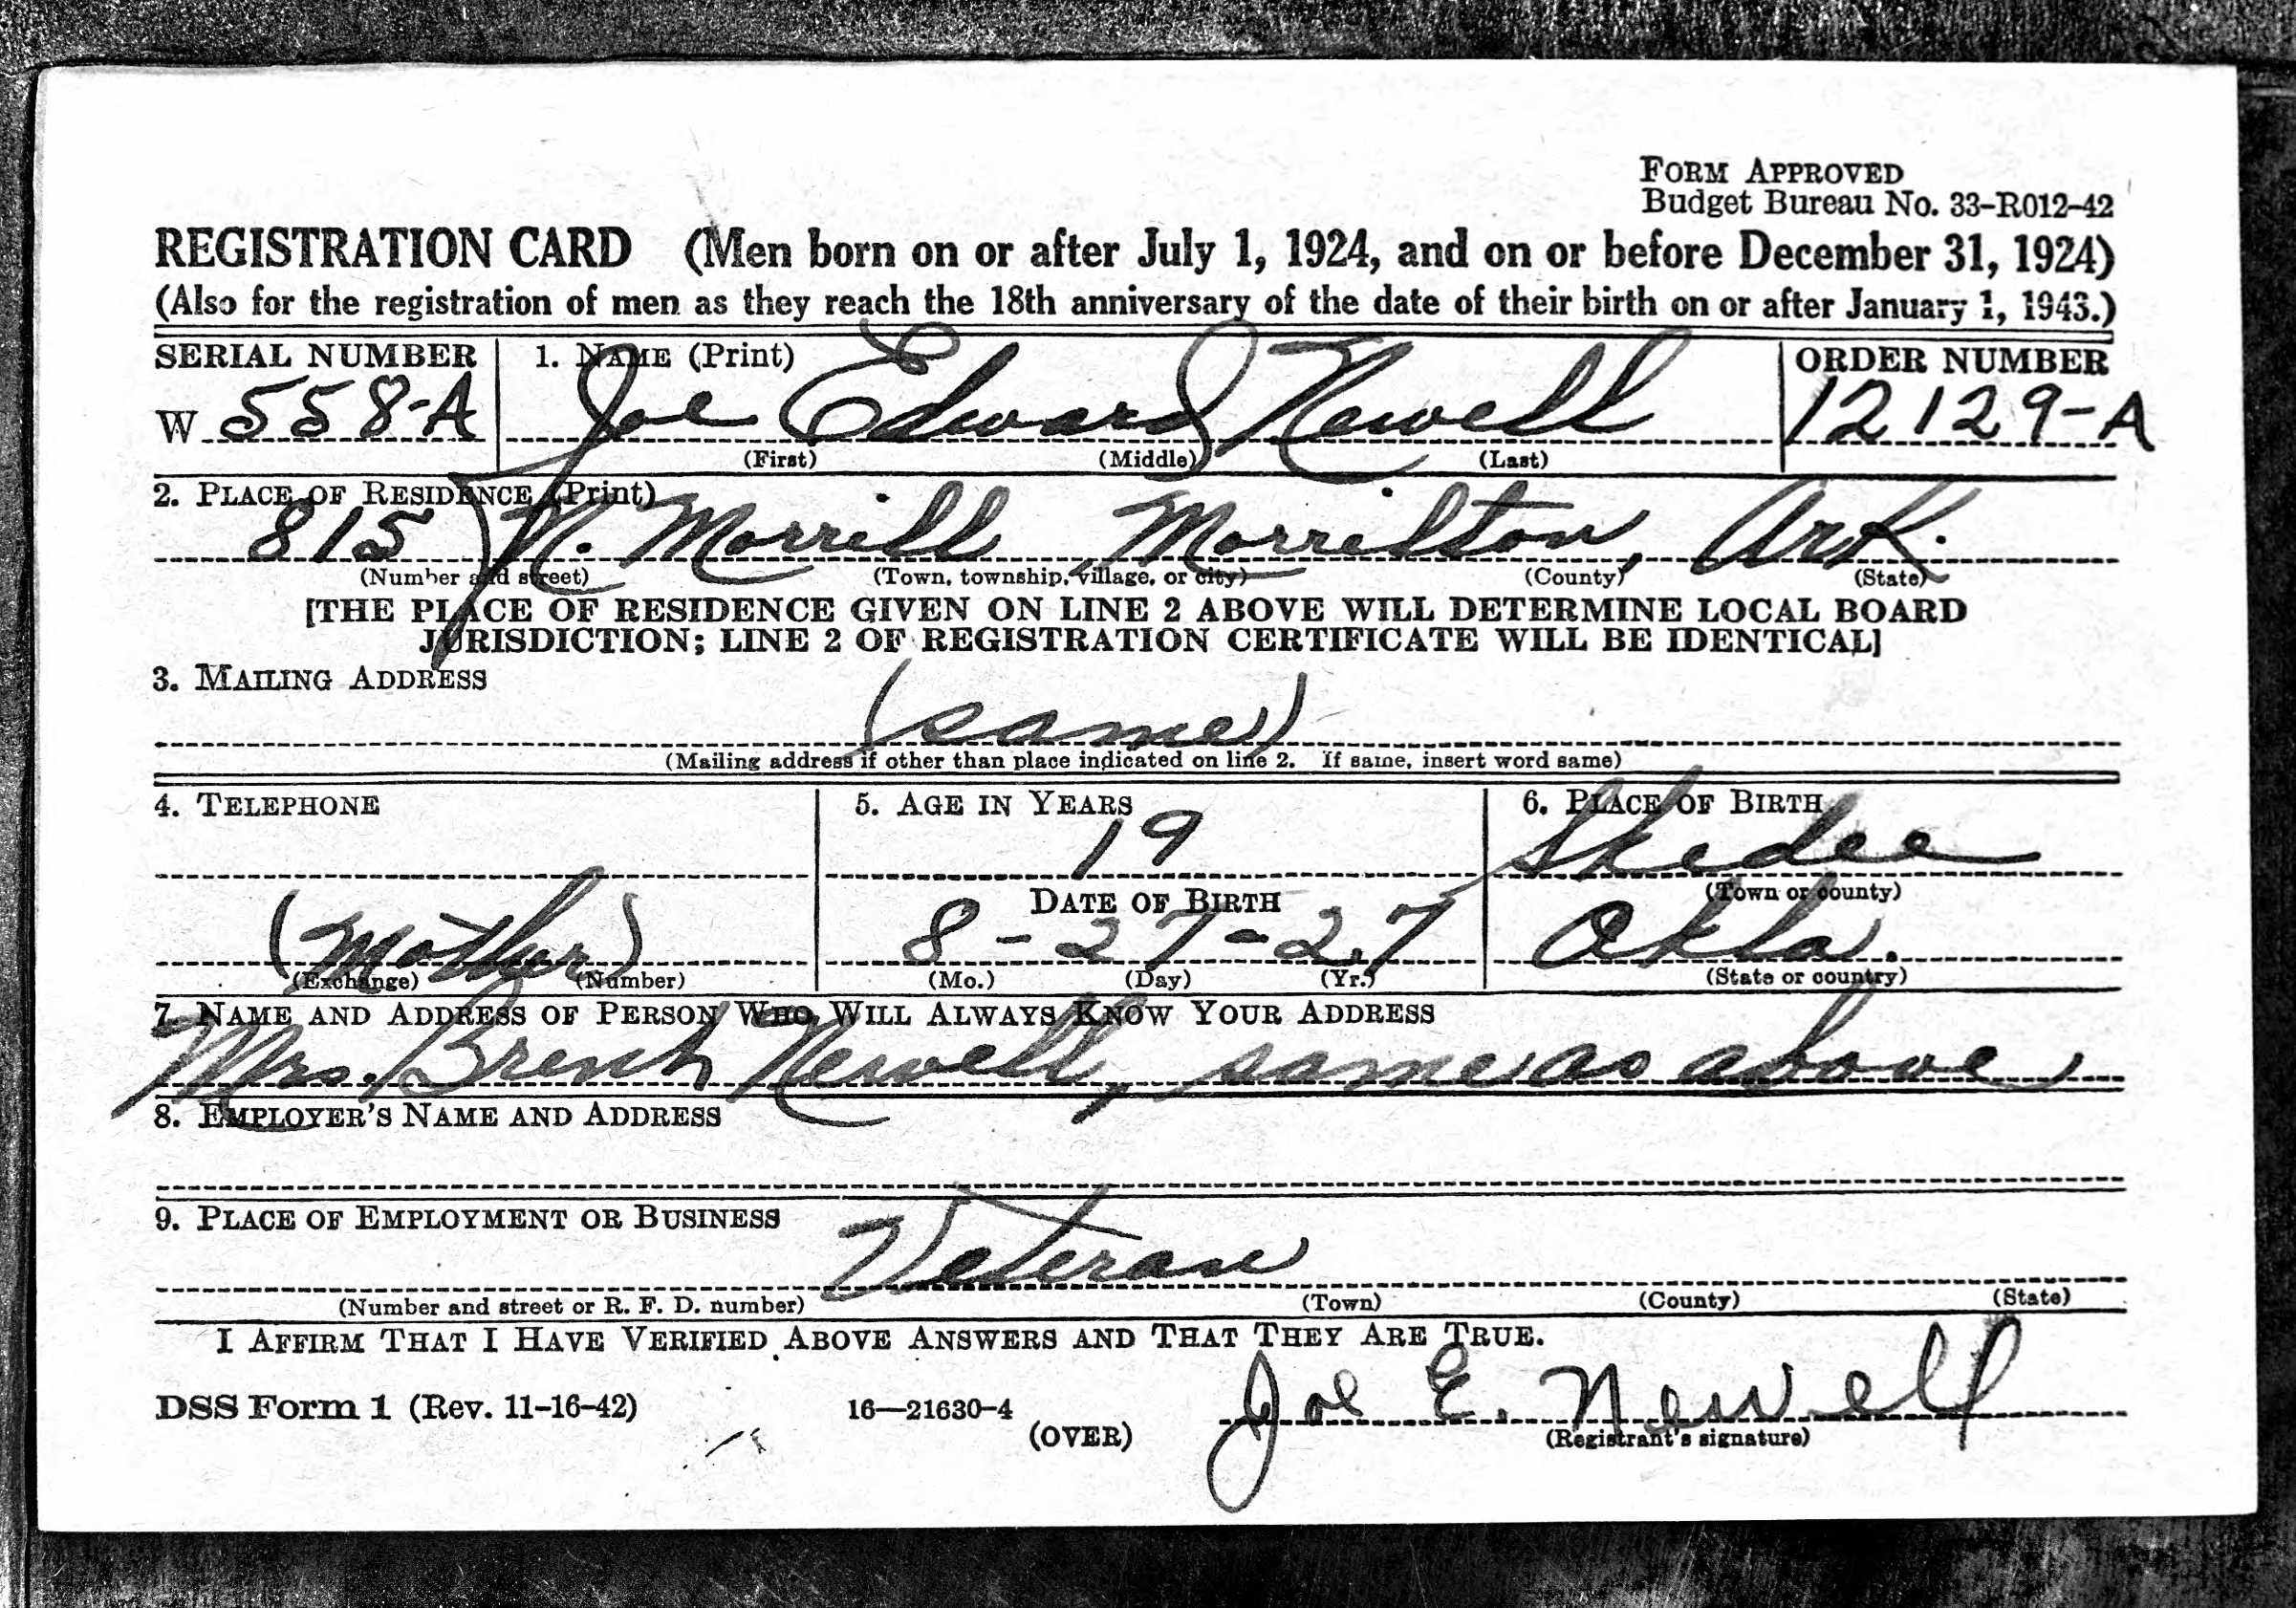 FORM APPROVED
Budget Bureau No. 33-R012-42
REGISTRATION CARD (Men born on or after July 1, 1924, and on or before December 31, 1924)
(Also for the registration of men as they reach the 18th anniversary of the date of their birth on or after January 1, 1943.)
SERIAL NUMBER 1. NAME (Print) ORDER NUMBER
W 558-A Joe Edward Newell 12129-A
(First) (Middle) (Last)
2. PLACE OF RESIDENCE (Print)
815 N. Morrill Morrilton, Ark.
(Number and street) (Town, township, village, or city) (County) (State)
[THE PLACE OF RESIDENCE GIVEN ON LINE 2 ABOVE WILL DETERMINE LOCAL BOARD
JURISDICTION; LINE 2 OF REGISTRATION CERTIFICATE WILL BE IDENTICAL]
3. MAILING ADDRESS
(same)
(Mailing address if other than place indicated on line 2. If same, insert word same)
4. TELEPHONE 5. AGE IN YEARS 6. PLACE OF BIRTH
19 Skedee
DATE OF BIRTH (Town or county)
(Mother) 8-27-27 Okla.
(Exchange) (Number) (Mo.) (Day) (Yr.) (State or country)
7. NAME AND ADDRESS OF PERSON WHO WILL ALWAYS KNOW YOUR ADDRESS
Mrs. Brent Newell, same as above
8. EMPLOYER'S NAME AND ADDRESS
9. PLACE OF EMPLOYMENT OR BUSINESS
Veteran
(Number and street or R. F. D. number) (Town) (County) (State)
I AFFIRM THAT I HAVE VERIFIED ABOVE ANSWERS AND THAT THEY ARE TRUE.
DSS Form 1 (Rev. 11-16-42) 16—21630-4 Joe E. Newell
(OVER) (Registrant's signature)